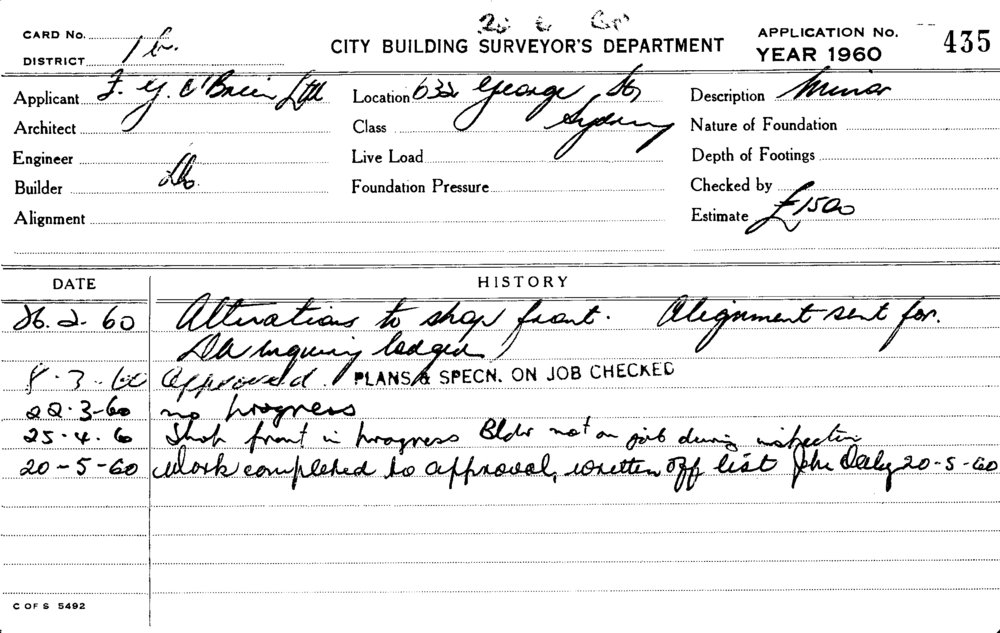 CARD No.
DISTRICT 1 b.
CITY BUILDING SURVEYOR'S DEPARTMENT
APPLICATION No. 435
YEAR 1960
Applicant F. Y. O'Brien Ltd Location 632 George St, Description Minor
Architect Class Sydney Nature of Foundation
Engineer Live Load Depth of Footings
Builder Do. Foundation Pressure Checked by
Alignment Estimate £1500
DATE HISTORY
26.2.60 Alterations to shop front. Alignment sent for.
DA inquiry lodged
8.3.60 Approved. PLANS & SPECN. ON JOB CHECKED
22.3-60 no progress
25.4.6 Shop front in progress Bldr not on job during inspection
20-5-60 Work completed to approval, written off list John Daly 20-5-60
C OF S 5492